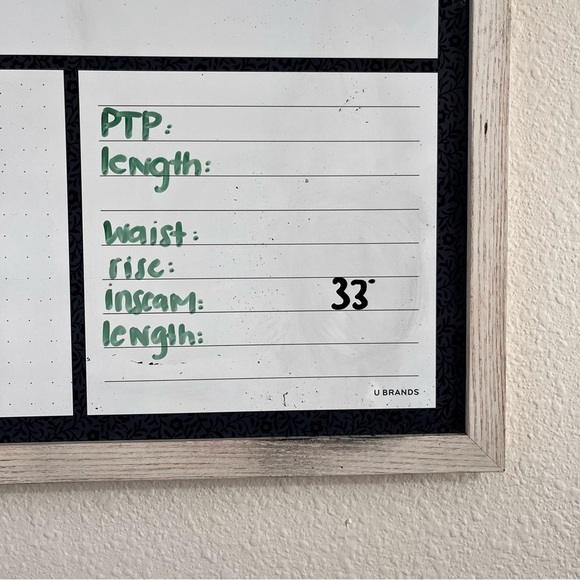 PTP:
length:
waist:
rise:
inseam: 33"
length:
U BRANDS